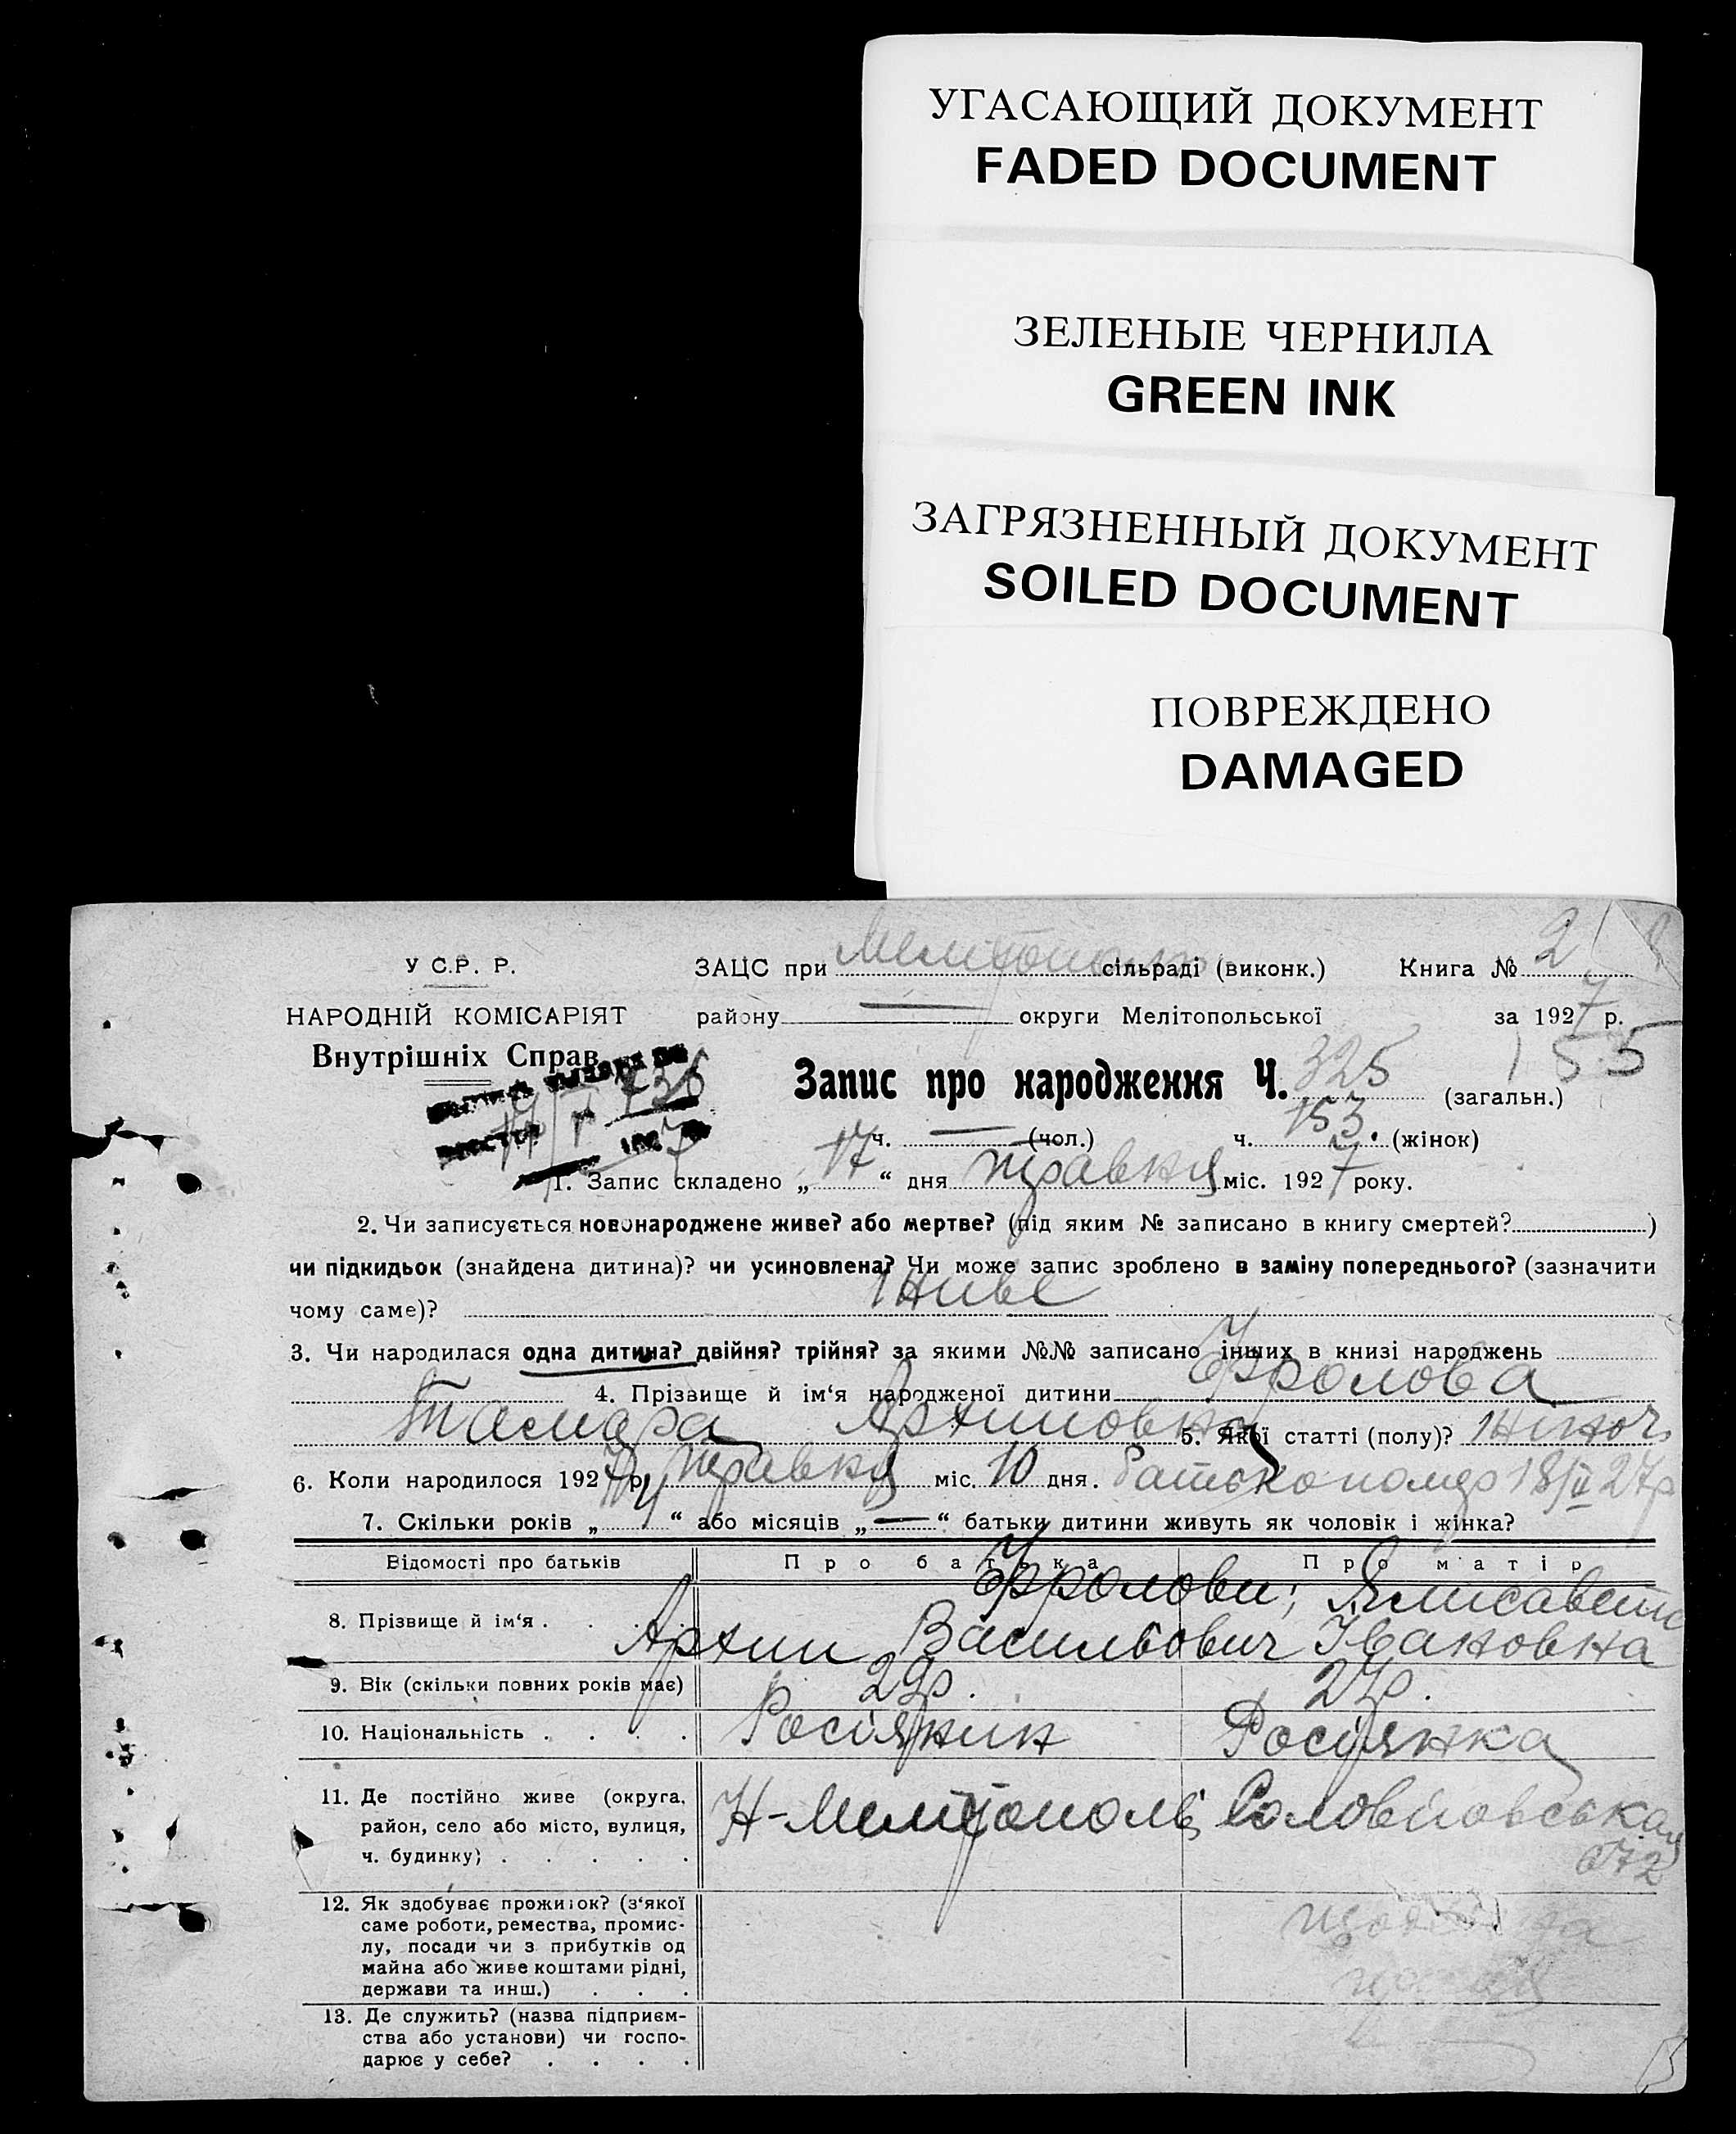 УГАСАЮЩИЙ ДОКУМЕНТ
FADED DOCUMENT
ЗЕЛЕНЫЕ ЧЕРНИЛА
GREEN INK
ЗАГРЯЗНЕННЫЙ ДОКУМЕНТ
SOILED DOCUMENT
ПОВРЕЖДЕНО
DAMAGED
У С.Р. Р. ЗАЦС при Мелітополь сільраді (виконк.) Книга № 2
НАРОДНІЙ КОМІСАРІЯТ району — округи Мелітопольської за 1927 р.
Внутрішніх Справ 155
Запис про народження Ч. 325 (загальн.)
ч. — (чол.) ч. 153. (жінок)
1. Запис складено „ 17 “ дня травня міс. 1927 року.
2. Чи записується новонароджене живе? або мертве? (під яким № записано в книгу смертей? )
чи підкидьок (знайдена дитина)? чи усиновлена? Чи може запис зроблено в заміну попереднього? (зазначити
чому саме)? Живе
3. Чи народилася одна дитина? двійня? трійня? за якими №№ записано інших в книзі народжень
4. Прізвище й ім‘я народженої дитини Фролова
Тамара Архиповна 5. Якої статті (полу)? Жіноч.
6. Коли народилося 1927 р. травня міс. 10 дня. батько помер 18/II 27р
7. Скільки років „ 4 “ або місяців „ — “ батьки дитини живуть як чоловік і жінка?
Відомості про батьків Про батька Про матір
Фролови; Єлисавета
8. Прізвище й ім‘я . Архип Васильович Івановна
9. Вік (скільки повних років має) 29р. 27р.
10. Національність . . . . Росіянин Росіянка
11. Де постійно живе (округа, район, село або місто, вулиця, ч. будинку) . . . . . Н-Мелітополь Соловйовська
672
12. Як здобуває прожиток? (з‘якої
саме роботи, ремества, промис-
лу, посади чи з прибутків од
майна або живе коштами рідні,
держави та инш.) . . .
13. Де служить? (назва підприєм-
ства або установи) чи госпо-
дарює у себе? . . . .